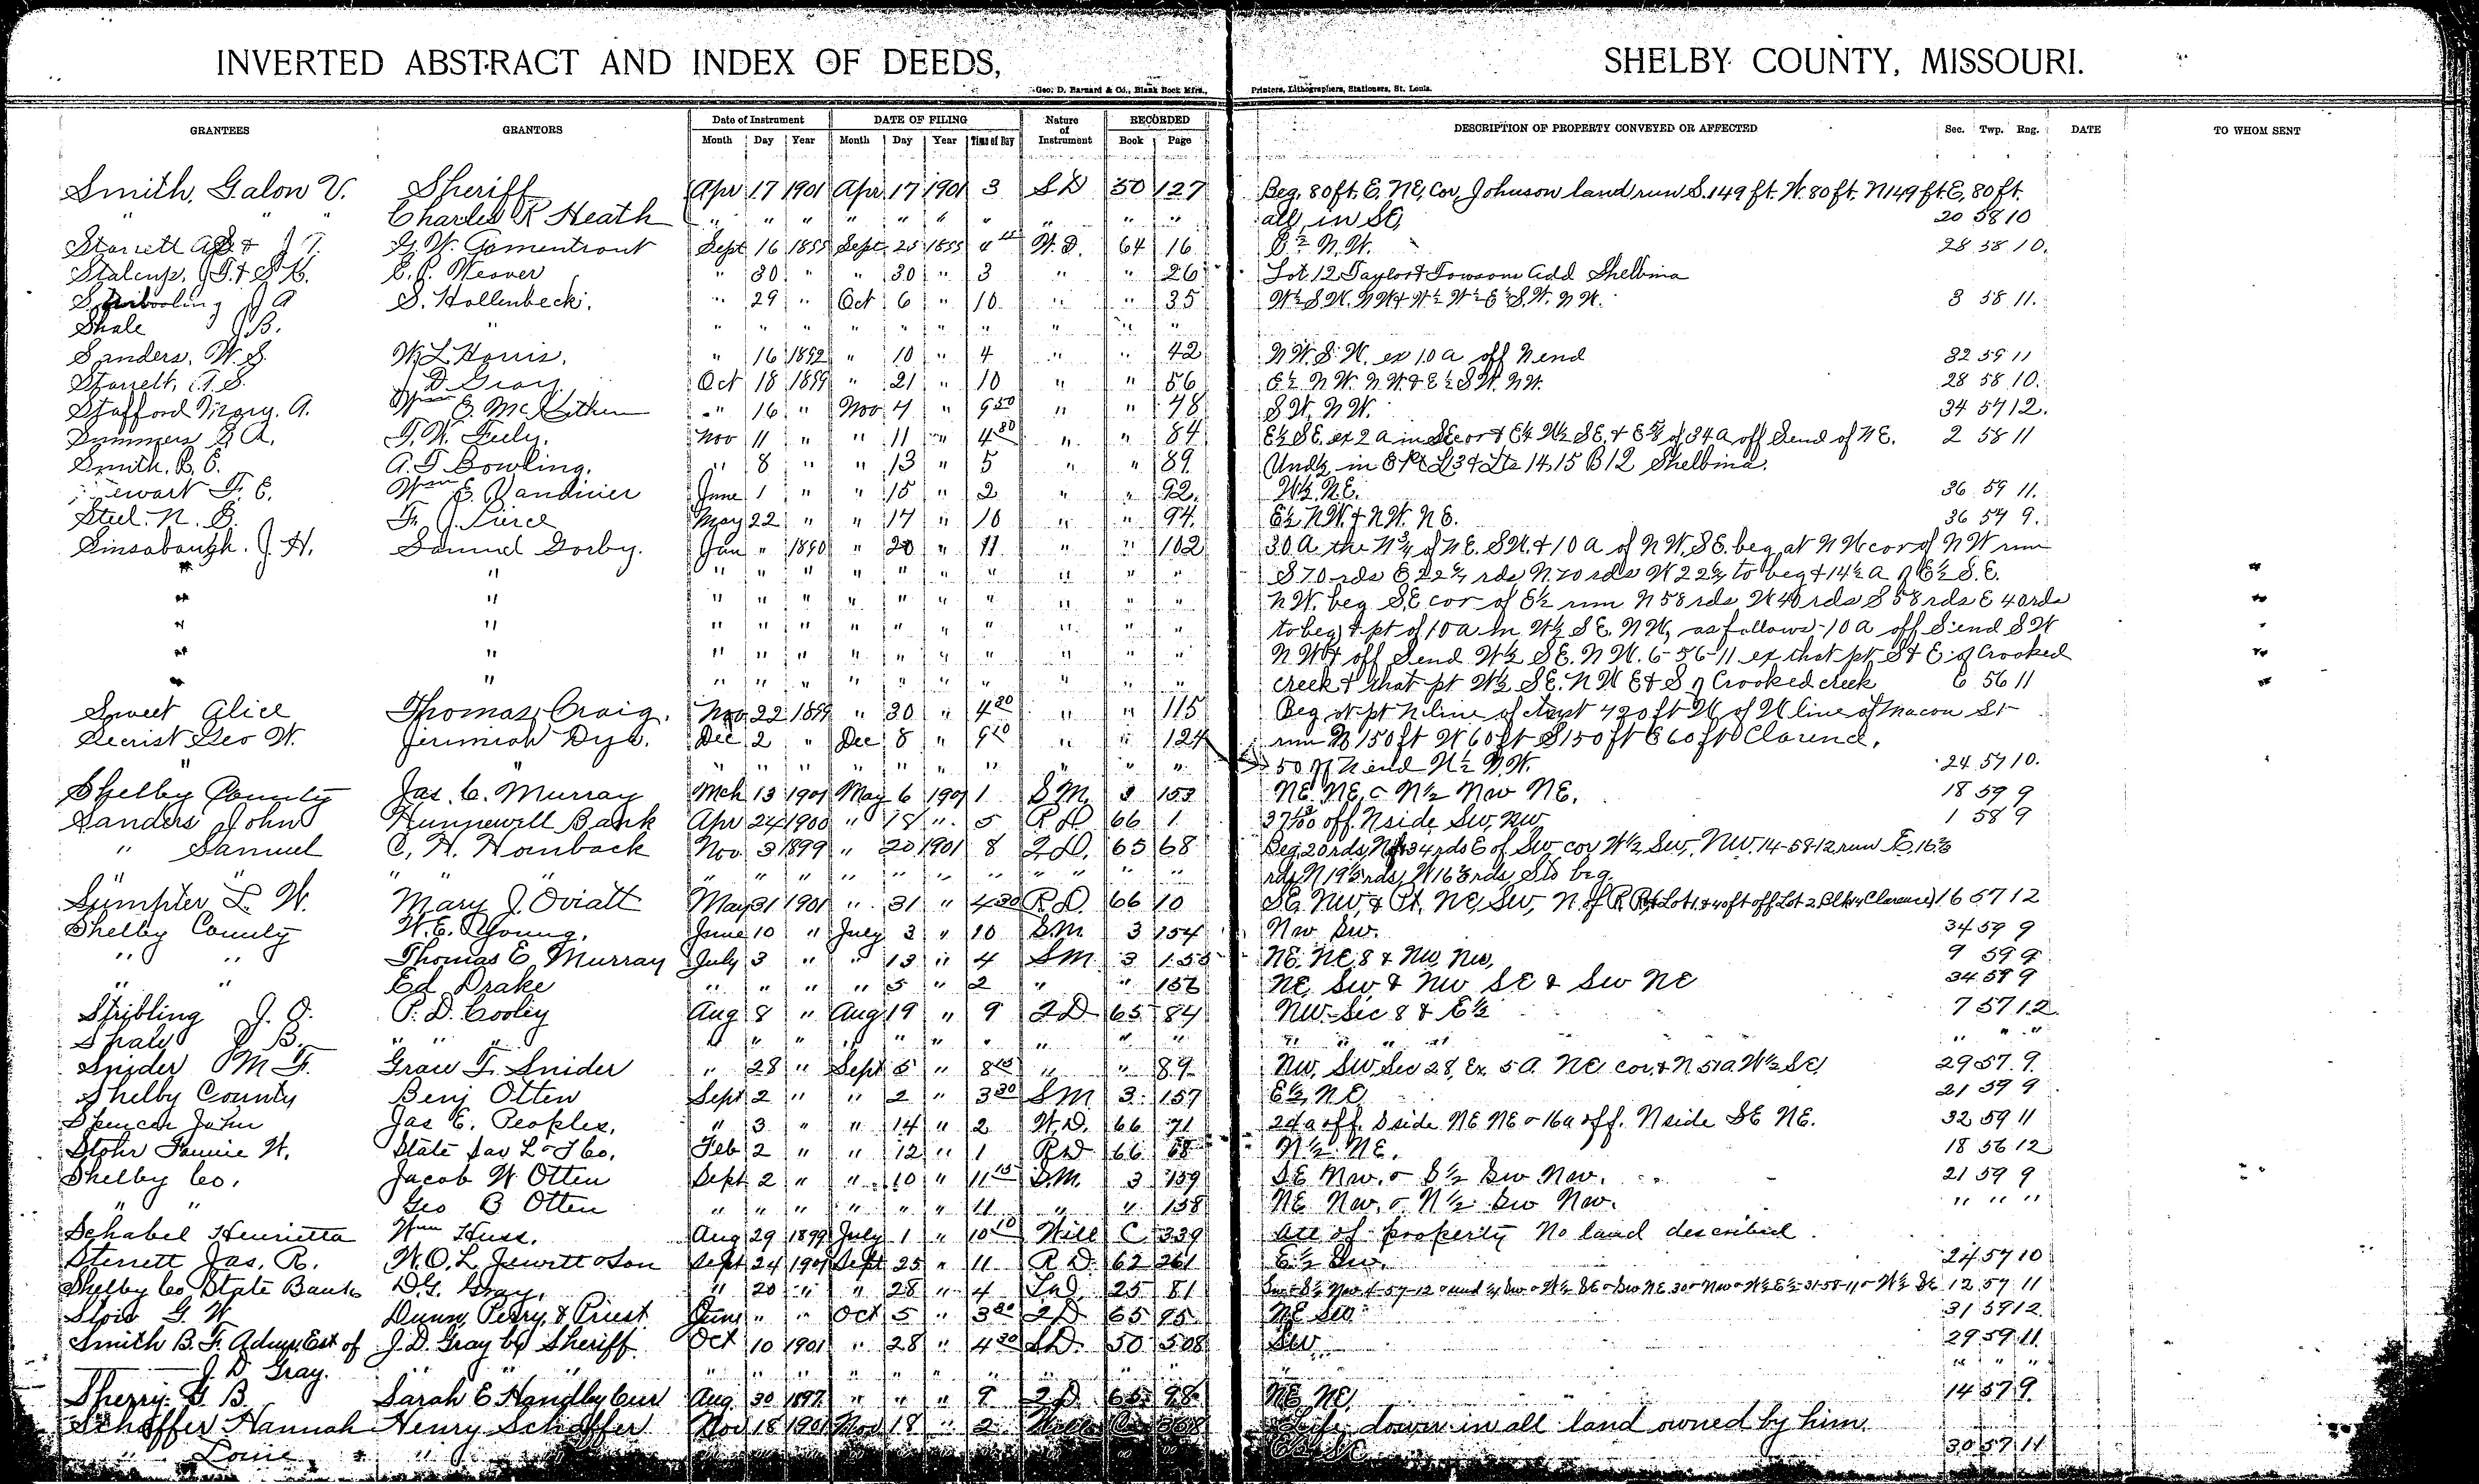 INVERTED ABSTRACT AND INDEX OF DEEDS, SHELBY COUNTY, MISSOURI.
Geo. D. Barnard & Co., Blank Book Mfrs., Printers, Lithographers, Stationers, St. Louis.
GRANTEES GRANTORS Date of Instrument DATE OF FILING Nature of Instrument RECORDED DESCRIPTION OF PROPERTY CONVEYED OR AFFECTED Sec. Twp. Rng. DATE TO WHOM SENT
Month Day Year Month Day Year Time of Day Book Page
Smith, Galon V. Sheriff Apr 17 1901 Apr 17 1901 3 SD 50 127 Beg. 80 ft. E. NE, Cor, Johnson land run S. 149 ft. W. 80 ft. N 149 ft. E, 80 ft.
" " " Charles R Heath " " " " " " " " " " all, in SE, 20 58 10
Starrett & J T. G. W. Gamentrout Sept 16 1855 Sept 25 1855 W. D. 64 16 E ½ N. W. 28 58 10.
Stalcup, J. T. & S. K. E. P. Weaver " 30 " " 30 " 3 " " 26 Lot 12 Taylor & Towsons Add Shelbina
J A S. Hollenbeck. " 29 " Oct 6 " 10 " " 35 W½ S.W. N W & W ½ W ½ E ½ S. W. N W. 3 58 11.
Shale J B. " " " " " " " " " " "
Sanders, W. S. W. L. Harris. " 16 1892 " 10 " 4 " " 42 N W. S. W. ex 10 a off N end 32 59 11
Starrett, A. S. J. D. Gray Oct 18 1899 " 21 " 10 " " 56 E ½ N W. N W. & E ½ S W. N W. 28 58 10.
Stafford Mary. A. Wm E. " 16 " Nov 4 " 9 50 " " 78 S W. N W. 34 57 12.
Summers A. F. W. Nov 11 " " 11 " 4 30 " " 84 E½ S.E. ex 2 a in SE cor & E½ W½ SE. & E ⅝ of 34 a off S end of N E. 2 58 11
Smith, B. E. A. T. Bowling. " 8 " " 13 " 5 " " 89 Und½ in Lts 14, 15 B 12 Shelbina.
ewart F. E. Wm E. Vandivier June 1 " " 15 " 2 " " 92. W½ N.E. 36 59 11.
Steel. N. B. F. J. Pierce May 22 " " 17 " 10 " " 94. E½ N W. & N W. N E. 36 57 9.
Sinsabaugh. J. H. Samuel Gorby. Jan " 1890 " 20 " 11 " " 102 30 A the N ¾ of N E. S W. & 10 a of N W. S E. beg at N W cor of N W run
" " " " " " " " " " " " S 70 rds E 22 rds N. 70 rds W 22 to beg & 14½ a of E½ S. E. "
" " " " " " " " " " " " N W. beg S.E cor of E½ run N 58 rds W 40 rds S 58 rds E 40 rds "
" " " " " " " " " " " " to beg & pt of 10 a in W½ S E. N W, as follows-10 a off S end S W "
" " " " " " " " " " " " N W & off S end W½ S E. N W. 6-56-11 ex that pt S & E of Crooked "
" " " " " " " " " " " " creek & that pt W½ S E. N W E & S of Crooked creek 6 56 11 "
Sweet Alice Thomas Craig. Nov 22 1899 " 30 " 4 30 " " 115 Beg at pt N line of 420 ft W of W line of Macon St
Secrist Geo W. Jerimiah Dye. Dec 2 " Dec 8 " 9 10 " " 124 run N 150 ft W 60 ft S 150 ft E 60 ft Clarence.
" " " " " " " " " " " " 50 off N end W ½ N. W. 24 57 10.
Shelby County Jas. C. Murray Mch 13 1901 May 6 1901 1 S M. 3 153 NE. NE, & N½ Nw NE. 18 59 9
Sanders John Hunnewell Bank Apr 24 1900 " 18 " 5 R D 66 1 off N side Sw, Nw 1 58 9
" Samuel C. H. Hornback Nov 3 1899 " 20 1901 8 2 D. 65 68 Beg. 20 rds N & 34 rds E of Sw cor W½ Sw, NW. 14-58-12 run E. 16⅔
" " " " " " " " " " " " rds N 19 rds, W 16⅔ rds, S to beg.
Sumpter L. W. Mary J. Oviatt May 31 1901 " 31 " 4 30 R. D. 66 10 SE, NW, & Pt. NE, Sw, N. of R R & Lot 1 & 40 ft off Lot 2 Blk Clarence 16 57 12
Shelby County W. E. Young. June 10 " July 3 " 10 S. M 3 154 Nw Sw. 34 59 9
" " Thomas E. Murray July 3 " " 13 " 4 S M. 3 155 NE. NE, 8 & Nw, Nw, 9 59 9
" " Ed Drake " " " " 5 " 2 " " 156 NE, Sw & Nw SE & Sw NE 34 59 9
Stribling J. O. P. D. Cooley Aug 8 " Aug 19 " 9 2 D 65 84 NW. Sec 8 & E½ 7 57 12.
Shaly J B. " " " " " " " " " " " " " " " " " " "
Snider M F. F. Snider " 28 " Sept 5 " 8 15 " " 89 NW, SW Sec 28, Ex 5 a NE cor, & N. 51 a W½ SE, 29 57 9.
Shelby County Benj Otten Sept 2 " " 2 " 3 30 S M 3 157 E½, NE 21 59 9
Spencer John Jas E. Peoples, " 3 " " 14 " 2 W. D. 66 71 24 a off. S side NE NE & 16 a off. N side SE NE. 32 59 11
Stohr Fannie W. State Sav L & T Co, Feb 2 " " 12 " 1 R D 66 68 N½ NE. 18 56 12
Shelby Co, Jacob W Otten Sept 2 " " 10 " 11 15 S. M. 3 159 SE Nw. & S½ Sw Nw. 21 59 9
" " Geo B Otten " " " " " " 11 " " 158 NE Nw. & N½ Sw Nw. " " "
Schabel Henrietta Wm Huss. Aug 29 1899 July 1 " 10 10 Will C 339 All of property No land described.
Sterrett Jas. R. W. O. L. Jewett & Son Sept 24 1901 Sept 25 " 11 R D. 62 261 E½ Sw. 24 57 10
Shelby Co, State Bank D. G. Gray, " 20 " " 28 " 4 25 81 12 57 11
G. W. Dunn, Perry, & Priest June " " Oct 5 " 3 30 2 D 65 95 NE Sw 31 59 12
Smith B. F. Est of J. D. Gray by Sheriff Oct 10 1901 " 28 " 4 30 S D. 50 508 Sw 29 59 11
J. D. Gray. " " " " " " " " " " " " " " "
Sherry G B. Sarah E Handby Aug 30 1897 " " " 9 2 D 65 98 NE NE, 14 57 9.
Schaffer Hannah Henry Schaffer Nov 18 1901 Nov 18 " 2 368 Life dower in all land owned by him.
" Louie " " 30 57 11